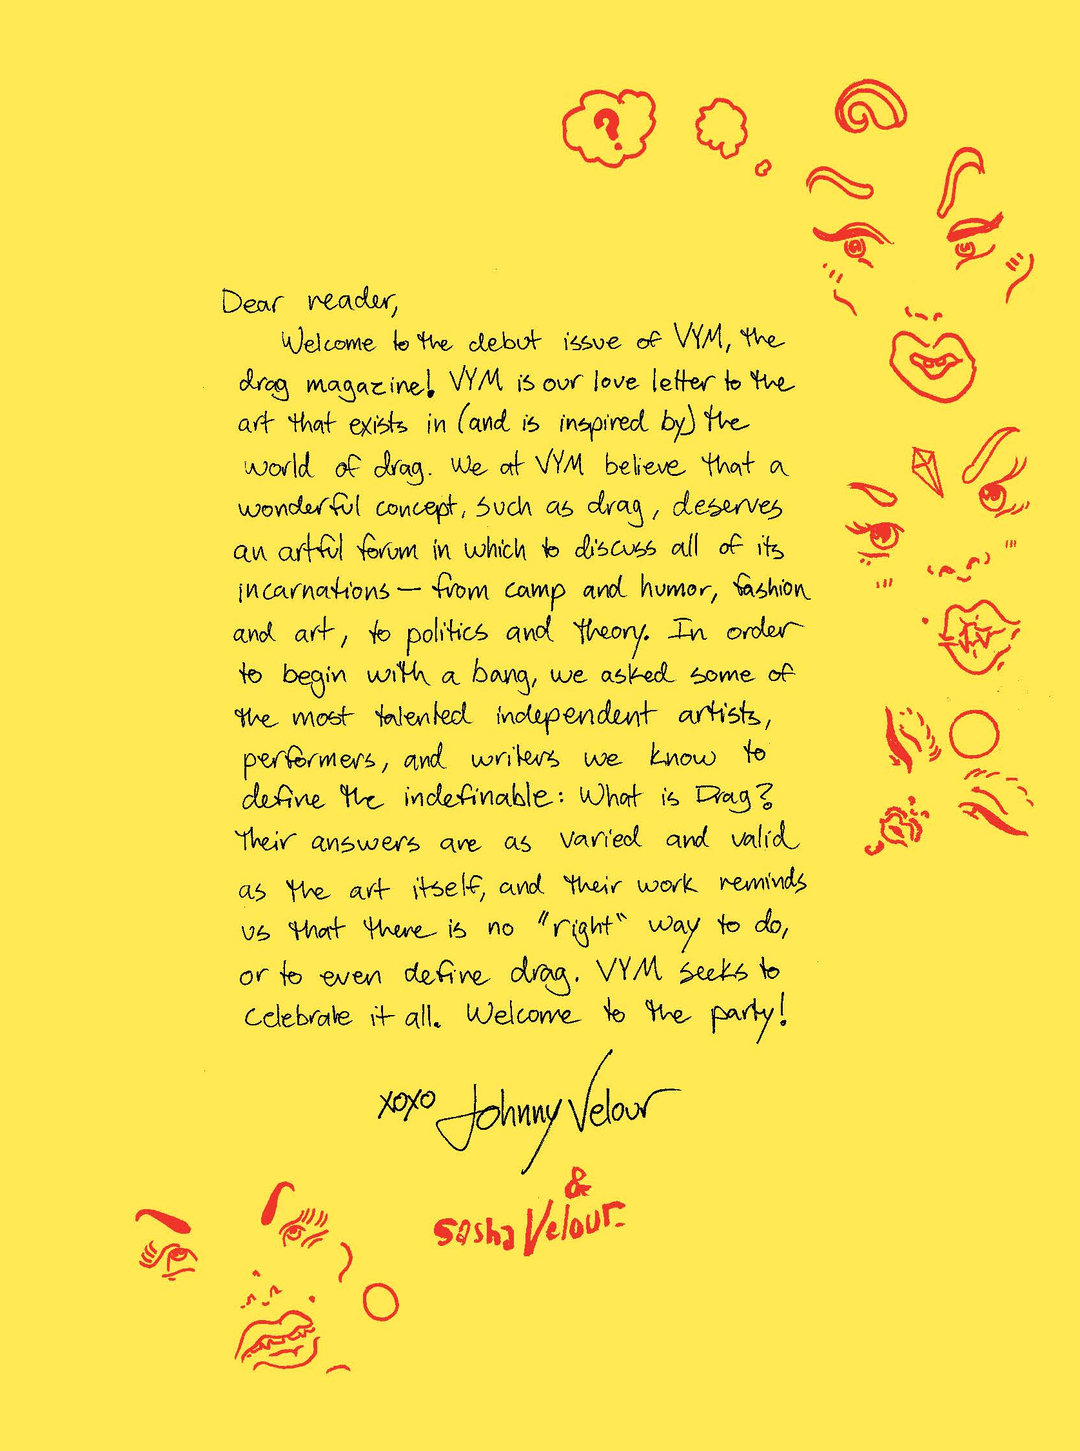 ?
Dear reader,
Welcome to the debut issue of VYM, the
drag magazine! VYM is our love letter to the
art that exists in (and is inspired by) the
world of drag. We at VYM believe that a
wonderful concept, such as drag, deserves
an artful forum in which to discuss all of its
incarnations — from camp and humor, fashion
and art, to politics and theory. In order
to begin with a bang, we asked some of
the most talented independent artists,
performers, and writers we know to
define the indefinable: What is Drag?
Their answers are as varied and valid
as the art itself, and their work reminds
us that there is no "right" way to do,
or to even define drag. VYM seeks to
celebrate it all. Welcome to the party!
xoxo Johnny Velour
&
Sasha Velour